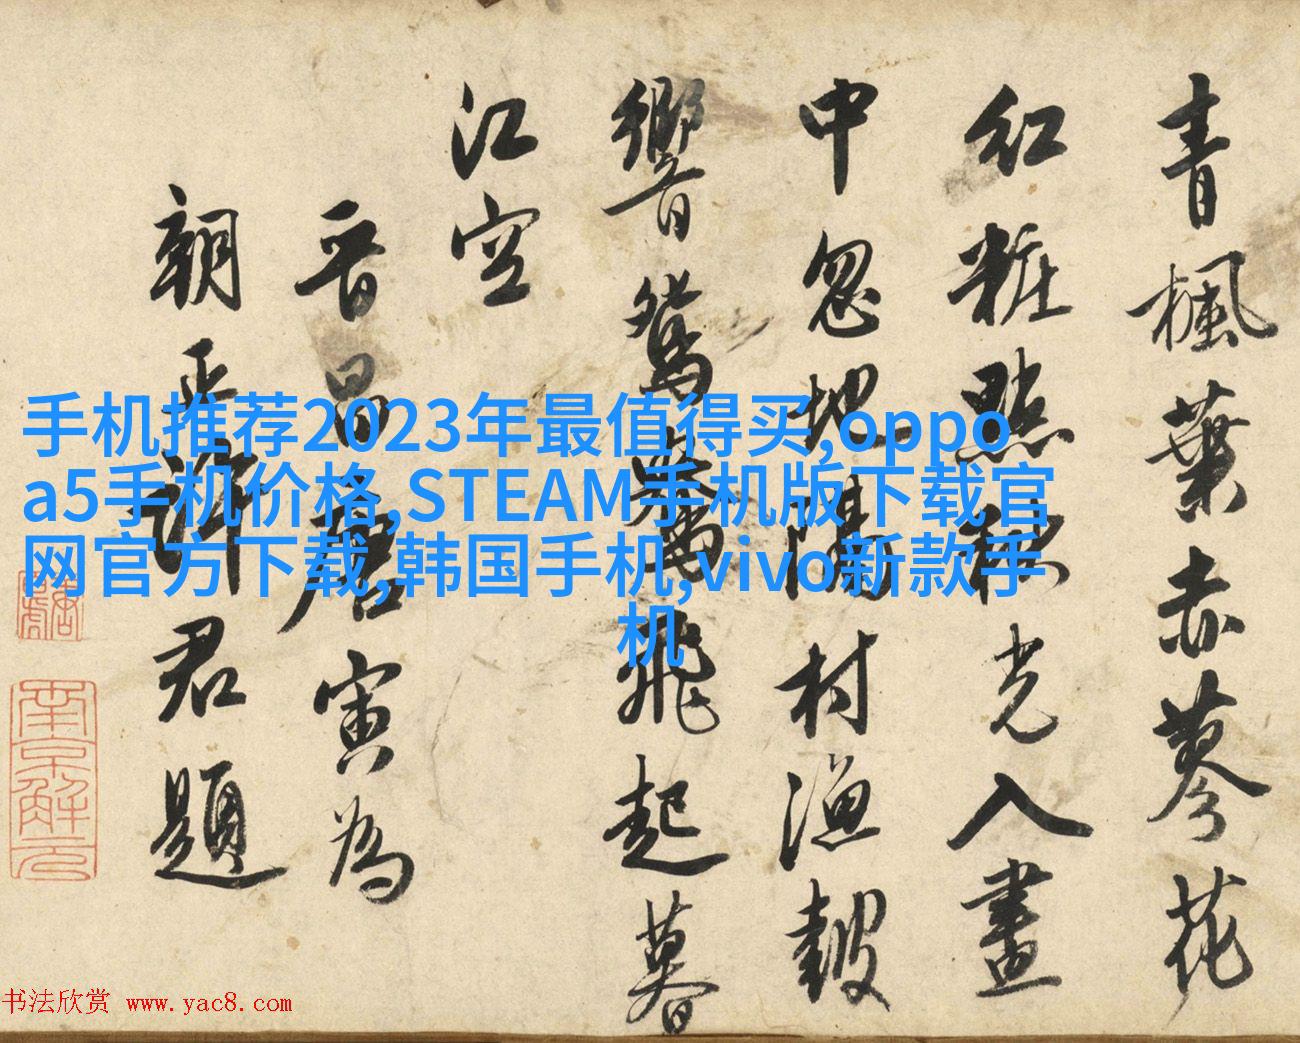 青楓葉赤蓼花
紅粧點秋光入畫
中忽地隔村漁鼓
響鴛鴦飛起暮
江空
晉昌唐寅為
朝正許君題
南京解元
手机推荐2023年最值得买,oppo
a5手机价格,STEAM手机版下载官
网官方下载,韩国手机,vivo新款手
机
书法欣赏 www.yac8.com